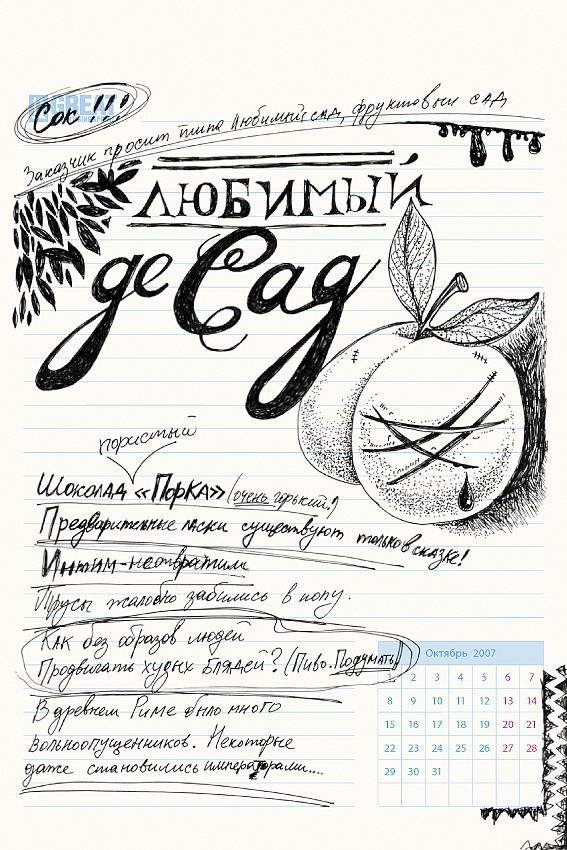 Сок!!!
Заказчик просит типа Любимый сад, фруктовый сад
ЛЮБИМЫЙ
де Сад
пористый
Шоколад «Порка» (очень горький!)
Предварительные ласки существуют только в сказке!
Интим-неотвратим
Трусы жалобно забились в попу.
Как без образов людей
Продвигать худых блядей? (Пиво. Подумать)
В древнем Риме было много
вольноопущенников. Некоторые
даже становились императорами....
Октябрь 2007
1 2 3 4 5 6 7
8 9 10 11 12 13 14
15 16 17 18 19 20 21
22 23 24 25 26 27 28
29 30 31